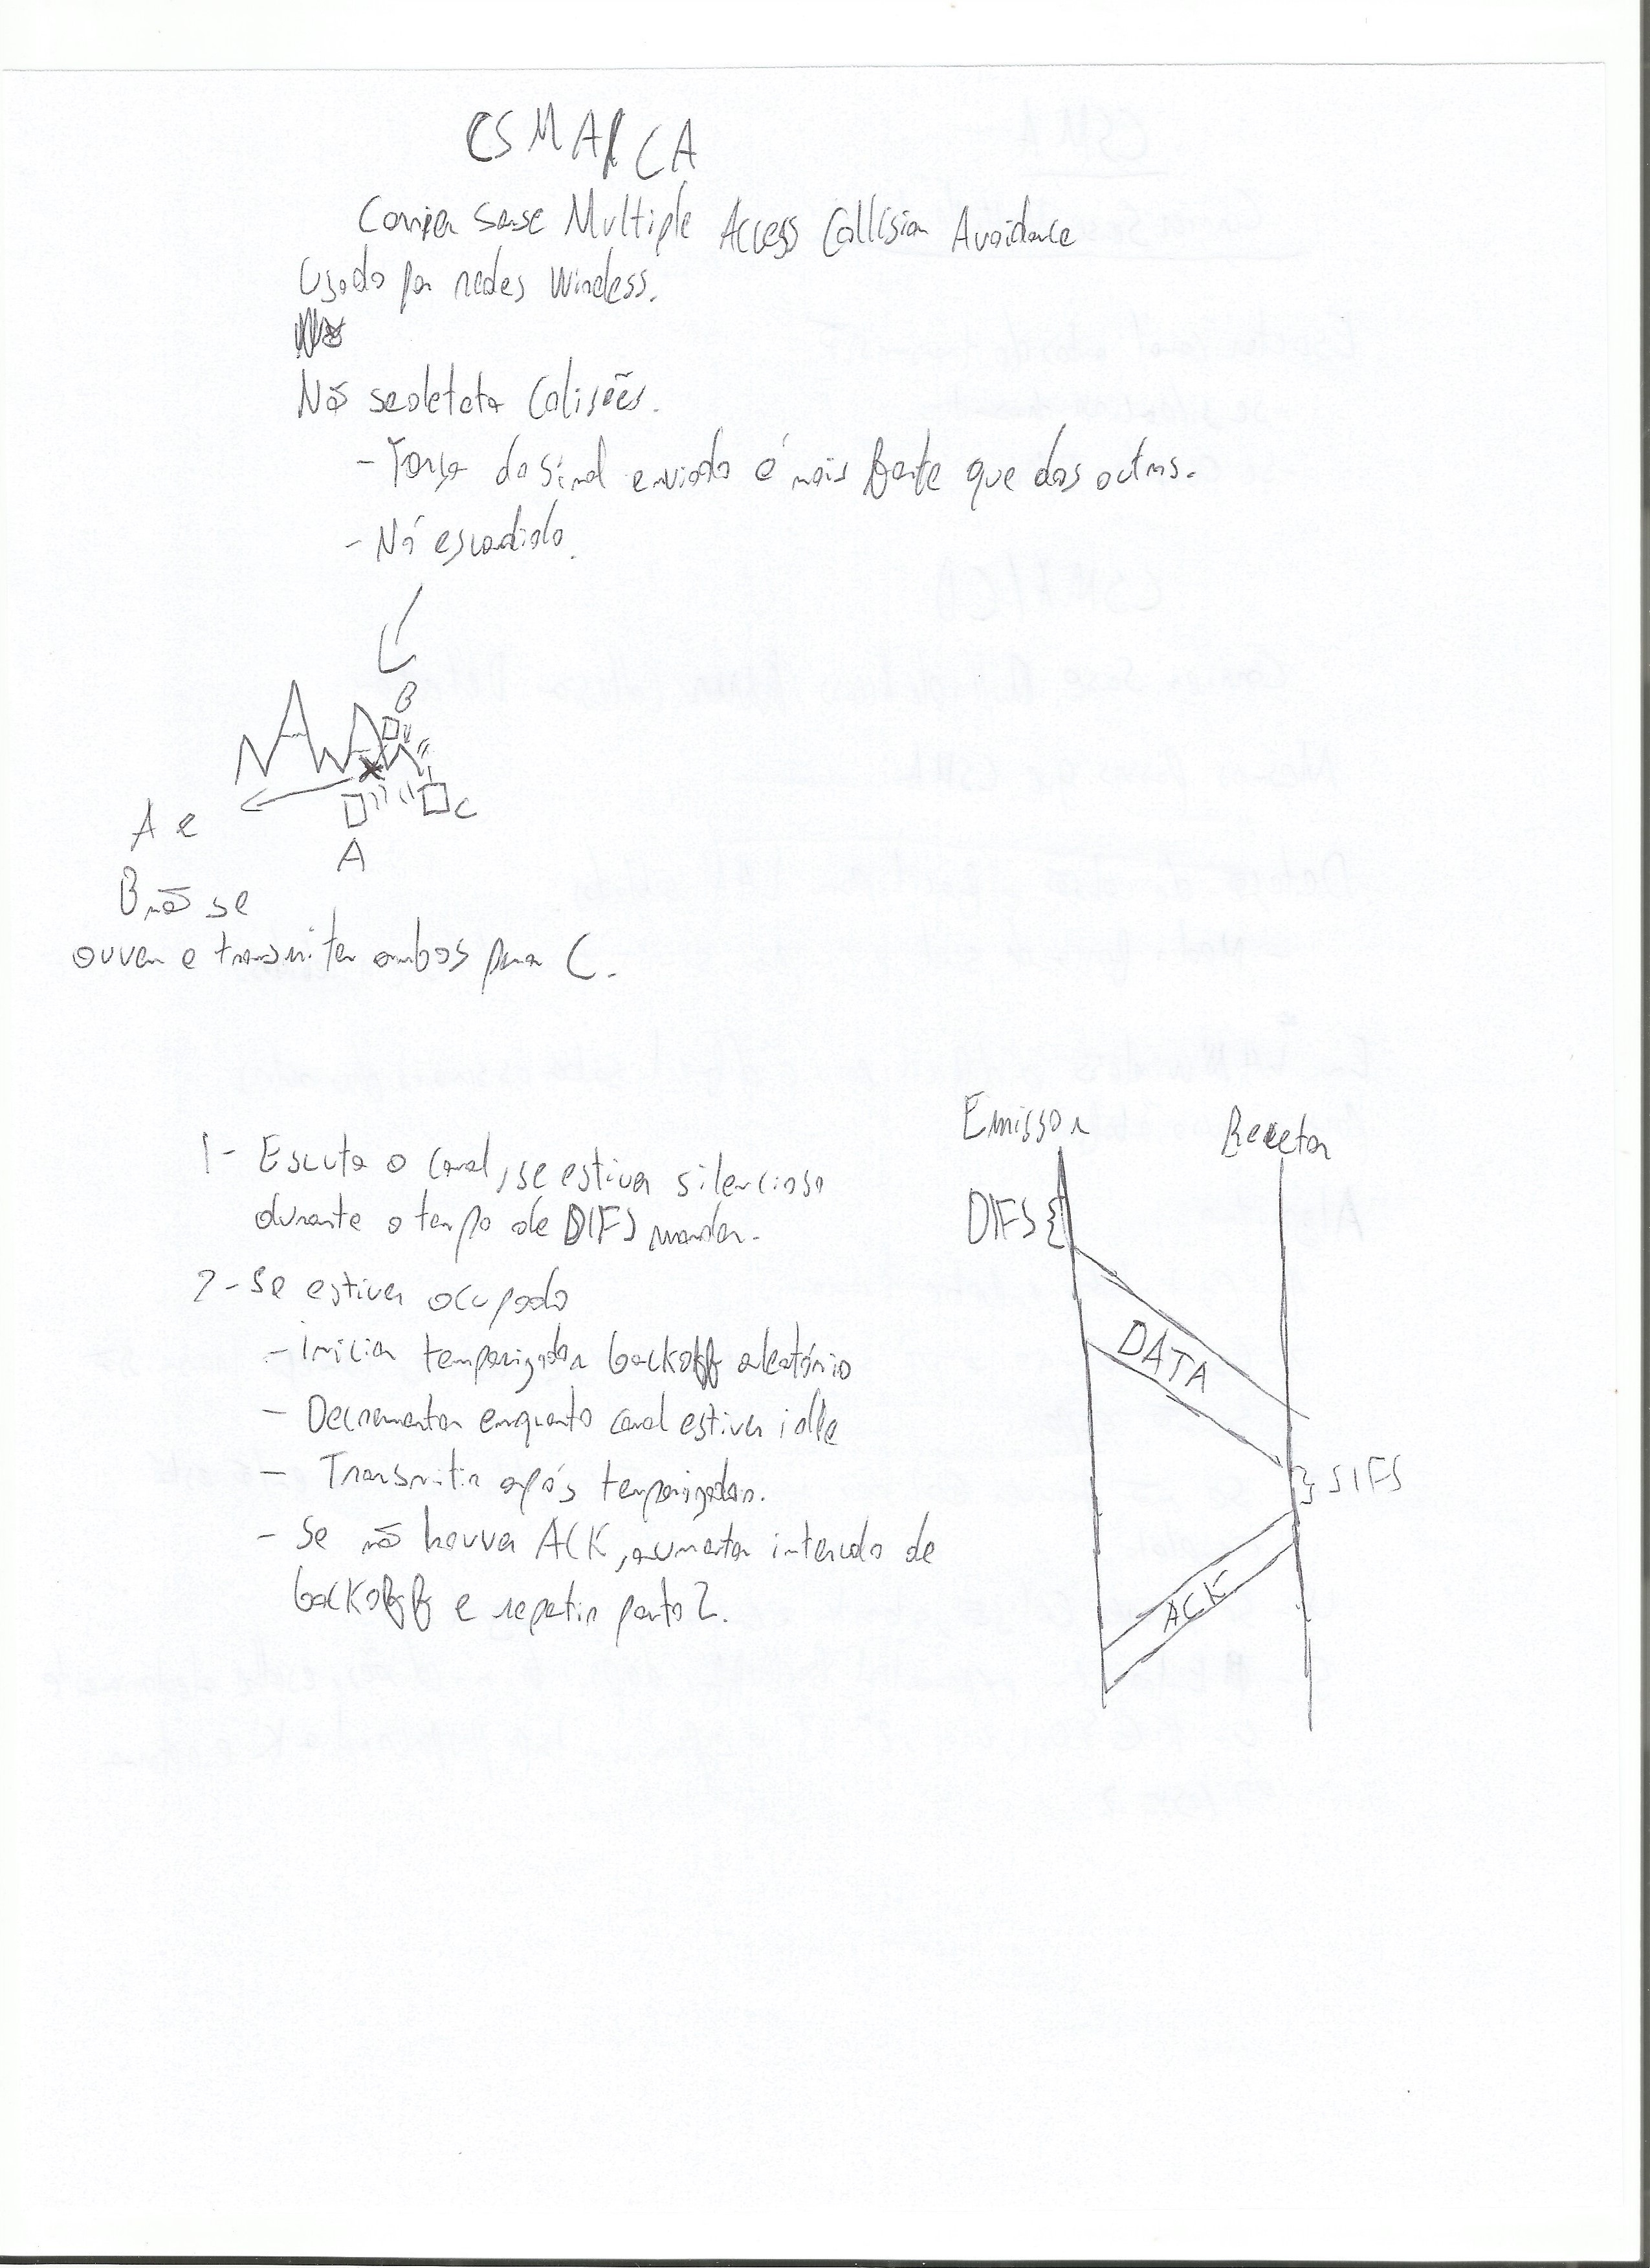 CSMA/CA
Carrier Sense Multiple Access Collision Avoidance
Usado por redes Wireless.
Não se deteta Colisões.
- Força do Sinal enviado é mais forte que dos outros.
- Nó escondido.
B
C
A
A e
B não se
ouvem e transmitem ambos para C.
1- Escuta o canal, se estiver silencioso
durante o tempo de DIFS mandar.
2- Se estiver ocupado
- Iniciar temporizador backoff aleatório
- Decrementar enquanto canal estiver idle
- Transmitir após temporizador.
- Se não houver ACK, aumentar intervalo de
backoff e repetir ponto 2.
Emissor
Recetor
DIFS
DATA
SIFS
ACK